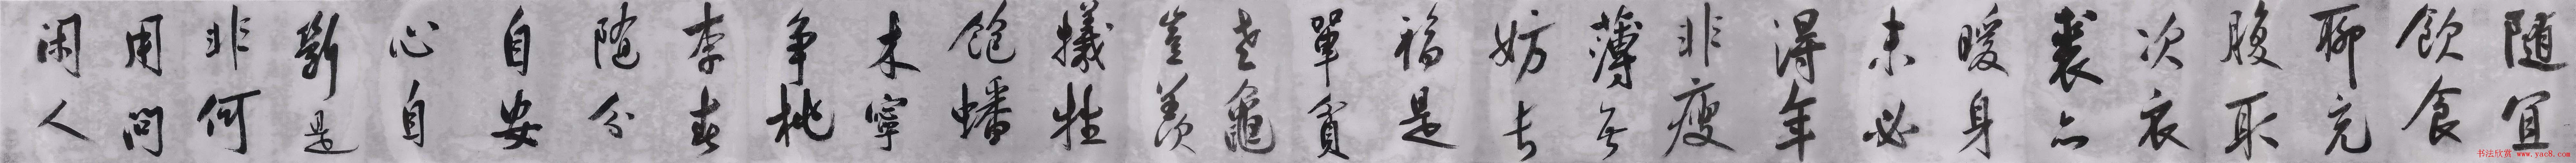 随宜
飲食
聊充
腹取
次衣
裘亦
暖身
未必
得年
非瘦
薄无
妨長
福是
單貧
老龜
豈羨
犧牲
飽蟠
木寧
爭桃
李春
随分
自安
心自
斷是
非何
用問
閑人
书法欣赏 www.yac8.com